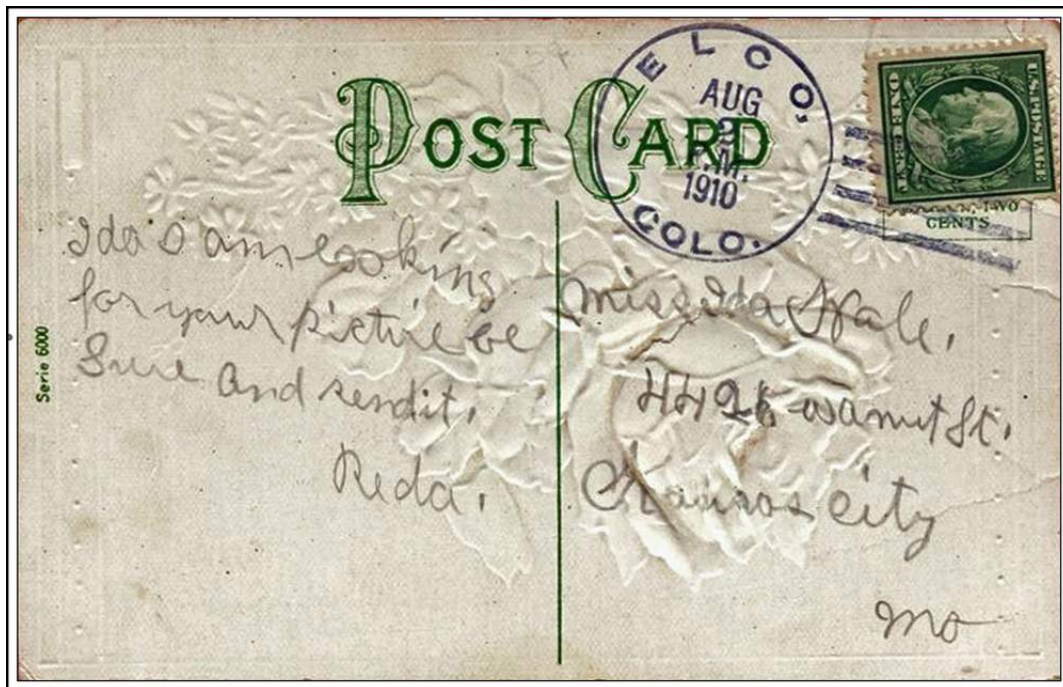 POST CARD
ELCO,
AUG
2
P.M.
1910
COLO.
U.S. POSTAGE
ONE CENT
TWO
CENTS
Ida I am looking
for your picture be
Sure and send it.
Reda.
Miss Ida Hale.
Wanut St.
Kansas City
Mo
Serie 6000